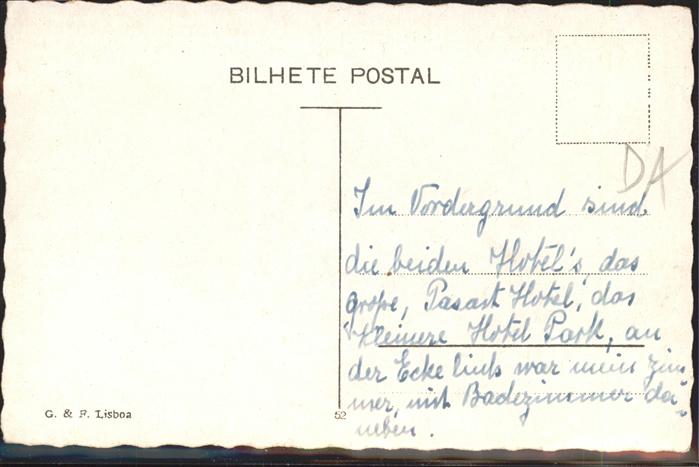 BILHETE POSTAL
DA
Im Vordergrund sind
die beiden Hotel's, das
große, Palast Hotel, das
kleinere Hotel Park, an
der Ecke links war mein Zim
mer, mit Badezimmer da-
neben.
G. & F. Lisboa
52